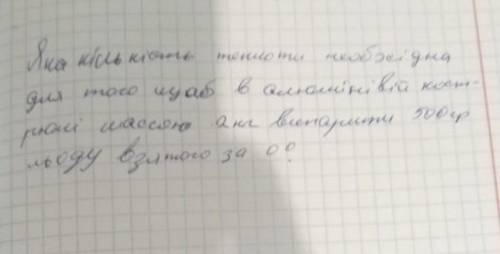 Яка кількість теплоти необхідна
для того щоб в алюмінієвій каст-
рюлі массою 2 кг випарити 500 гр
льоду взятого за 0°